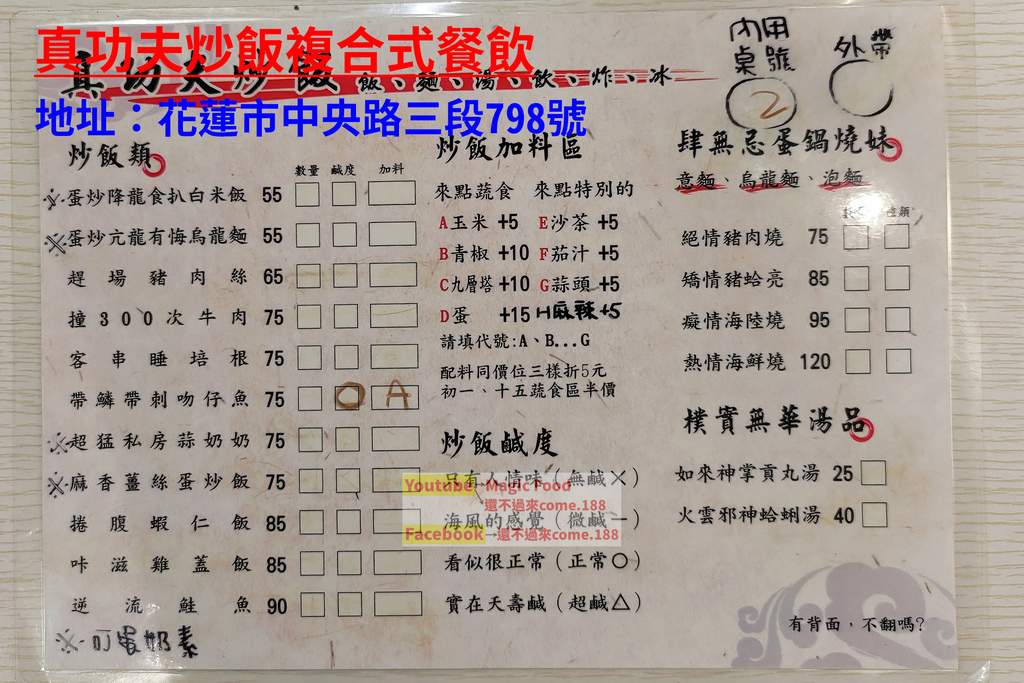 真功夫炒飯複合式餐飲
真功夫炒飯 飯、麵、湯、飲、炸、冰
地址：花蓮市中央路三段798號
內用
桌號
2
外帶
炒飯類
數量 鹹度 加料
※蛋炒降龍食扒白米飯 55
※蛋炒亢龍有悔烏龍麵 55
趕場豬肉絲 65
撞300次牛肉 75
客串睡培根 75
帶鱗帶刺吻仔魚 75 O A
※超猛私房蒜奶奶 75
※麻香薑絲蛋炒飯 75
捲腹蝦仁飯 85
咔滋雞蓋飯 85
逆流鮭魚 90
※可蛋奶素
炒飯加料區
來點蔬食 來點特別的
A玉米 +5 E沙茶 +5
B青椒 +10 F茄汁 +5
C九層塔 +10 G蒜頭 +5
D蛋 +15 H麻辣+5
請填代號:A、B...G
配料同價位三樣折5元
初一、十五蔬食區半價
炒飯鹹度
只有人情味（無鹹✕）
海風的感覺（微鹹一）
看似很正常（正常○）
實在天壽鹹（超鹹△）
Youtube→Magic Food
→還不過來come.188
Facebook→還不過來come.188
肆無忌蛋鍋燒妹
意麵、烏龍麵、泡麵
絕情豬肉燒 75
矯情豬蛤亮 85
癡情海陸燒 95
熱情海鮮燒 120
樸實無華湯品
如來神掌貢丸湯 25
火雲邪神蛤蜊湯 40
有背面，不翻嗎?